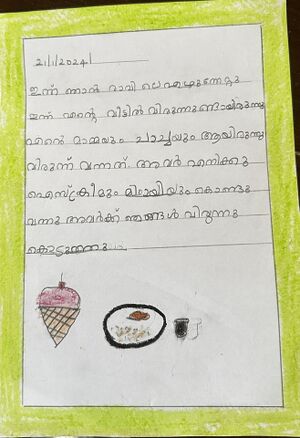 21/1/2024
ഇന്ന് ഞാൻ രാവിലെ എഴുന്നേറ്റു
ഇന്ന് എന്റെ വീട്ടിൽ വിരുന്നുണ്ടായിരുന്നു
എന്റെ മാമ്മയും ചാച്ചയും ആയിരുന്നു
വിരുന്ന് വന്നത്. അവർ എനിക്കു
ഐസ്ക്രീമും മിഠായിയും കൊണ്ടു
വന്നു അവർക്ക് ഞങ്ങൾ വിരുന്നു
കൊടുത്തു